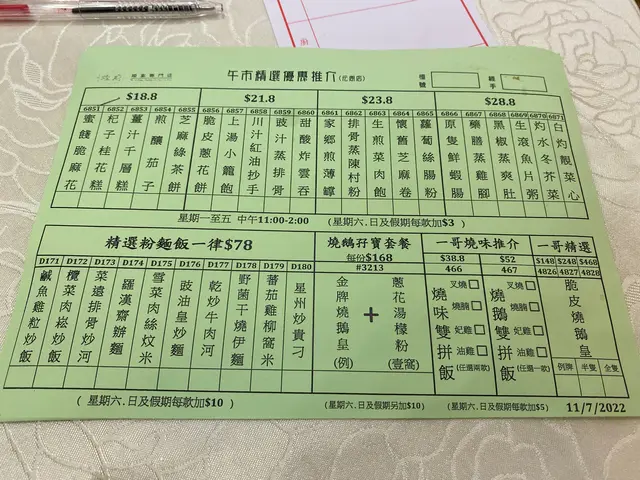 午市精選優惠推介(佐敦店)
檯號
經手
$18.8 $21.8 $23.8 $28.8
6851 6852 6853 6854 6855 6856 6857 6858 6859 6860 6861 6862 6863 6864 6865 6866 6867 6868 6869 6870 6871
蜜餞脆麻花
杞子桂花糕
薑汁千層糕
煎釀茄子
芝麻綠茶餅
脆皮蔥花餅
上湯小籠飽
川汁紅油抄手
豉汁蒸排骨
甜酸炸雲吞
家鄉煎薄罉
排骨蒸陳村粉
生煎菜肉飽
懷舊芝麻卷
蘿蔔絲腸粉
原隻鮮蝦腸
藥膳蒸雞腳
黑椒蒸爽肚
生滾魚片粥
灼水冬芥菜
白灼靚菜心
星期一至五 中午11:00-2:00 (星期六.日及假期每款加$3 )
精選粉麵飯一律$78
D171 D172 D173 D174 D175 D176 D177 D178 D179 D180
鹹魚雞粒炒飯
欖菜肉崧炒飯
菜遠排骨炒河
羅漢齋辦麵
雪菜肉絲炆米
豉油皇炒麵
乾炒牛肉河
野菌干燒伊麵
蕃茄雞柳窩米
星州炒貴刁
( 星期六.日及假期每款加$10 )
燒鵝孖寶套餐
每份$168
#3213
金牌燒鵝皇(例)
+
蔥花湯檬粉(壹窩)
(星期六.日及假期另加$10)
一哥燒味推介
$38.8 $52
466 467
燒味雙拼飯
叉燒
燒腩
妃雞
油雞
(任選兩款)
燒鵝雙拼飯
叉燒
燒腩
妃雞
油雞
(任選一款)
(星期六.日及假期每款加$5)
一哥精選
$148 $248 $468
4826 4827 4828
脆皮燒鵝皇
例牌 半隻 全隻
11/7/2022